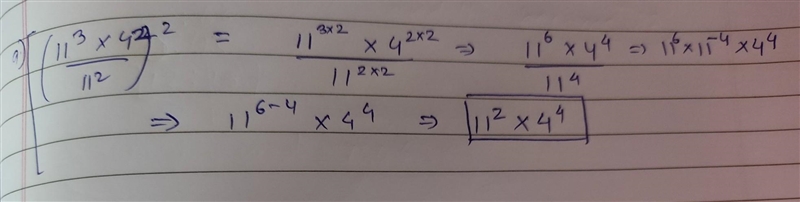 a) (11³ × 4² / 11²)² = 11^(3×2) × 4^(2×2) / 11^(2×2) ⇒ 11⁶ × 4⁴ / 11⁴ ⇒ 11⁶ × 11⁻⁴ × 4⁴
⇒ 11^(6-4) × 4⁴ ⇒ 11² × 4⁴